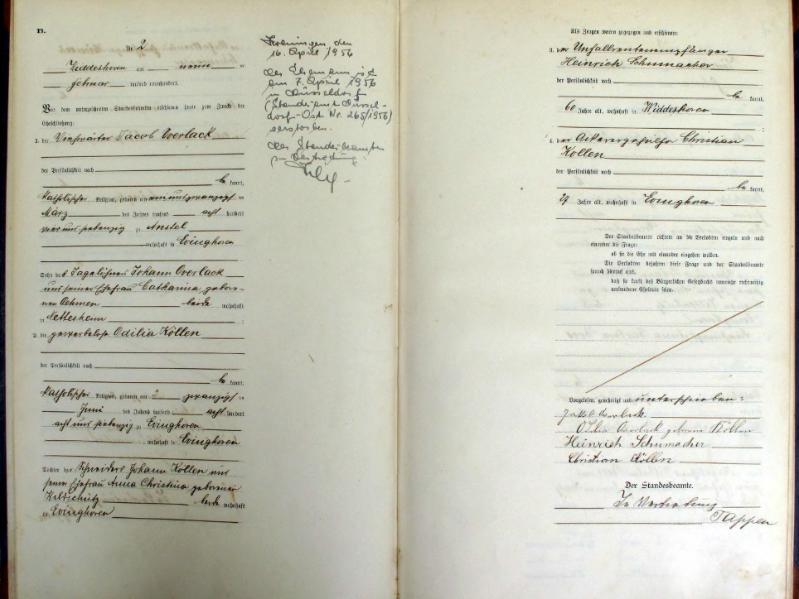 B.
Nr. 2
Widdeshoven am neun
Februar tausend neunhundert
Vor dem unterzeichneten Standesbeamten erschienen heute zum Zweck der
Eheschließung:
1. der Jacob Overlack
der Persönlichkeit nach
be kannt,
katholischer Religion, geboren am
März des Jahres tausend acht hundert
vier und siebenzig zu Anstel
wohnhaft in Evinghoven
Sohn des Tagelöhners Johann Overlack
und seiner Ehefrau Catharina gebor-
nen Oehmen beide wohnhaft
in Nettesheim
2. die gewerbelose Odilia Köllen
der Persönlichkeit nach
be kannt,
katholischer Religion, geboren am zwanzigsten
Juni des Jahres tausend acht hundert
acht und siebenzig zu Evinghoven
wohnhaft in Evinghoven
Tochter des Schneiders Johann Köllen und
seiner Ehefrau Anna Christina geborener
beide wohnhaft
in Evinghoven
den
16. April 1956
Der Ehemann ist
am 7. April 1956
in Düsseldorf
(Standesamt Düssel-
dorf-Ost Nr. 265/1956)
verstorben.
Der Standesbeamte
in Vertretung
Als Zeugen waren zugezogen und erschienen:
3. der Unfallrentenempfänger
Heinrich Schumacher
der Persönlichkeit nach
be kannt,
60 Jahre alt, wohnhaft in Widdeshoven
4. der Ackerergehilfe Christian
Köllen
der Persönlichkeit nach
be kannt,
29 Jahre alt, wohnhaft in Evinghoven
Der Standesbeamte richtete an die Verlobten einzeln und nach
einander die Frage:
ob sie die Ehe mit einander eingehen wollen.
Die Verlobten bejahten diese Frage und der Standesbeamte
sprach hierauf aus,
daß sie kraft des Bürgerlichen Gesetzbuchs nunmehr rechtmäßig
verbundene Eheleute seien.
Vorgelesen, genehmigt und unterschrieben:
Jacob Overlack
Odilia Overlack geborene Köllen
Heinrich Schumacher
Christian Köllen
Der Standesbeamte.
In Vertretung
Tappen